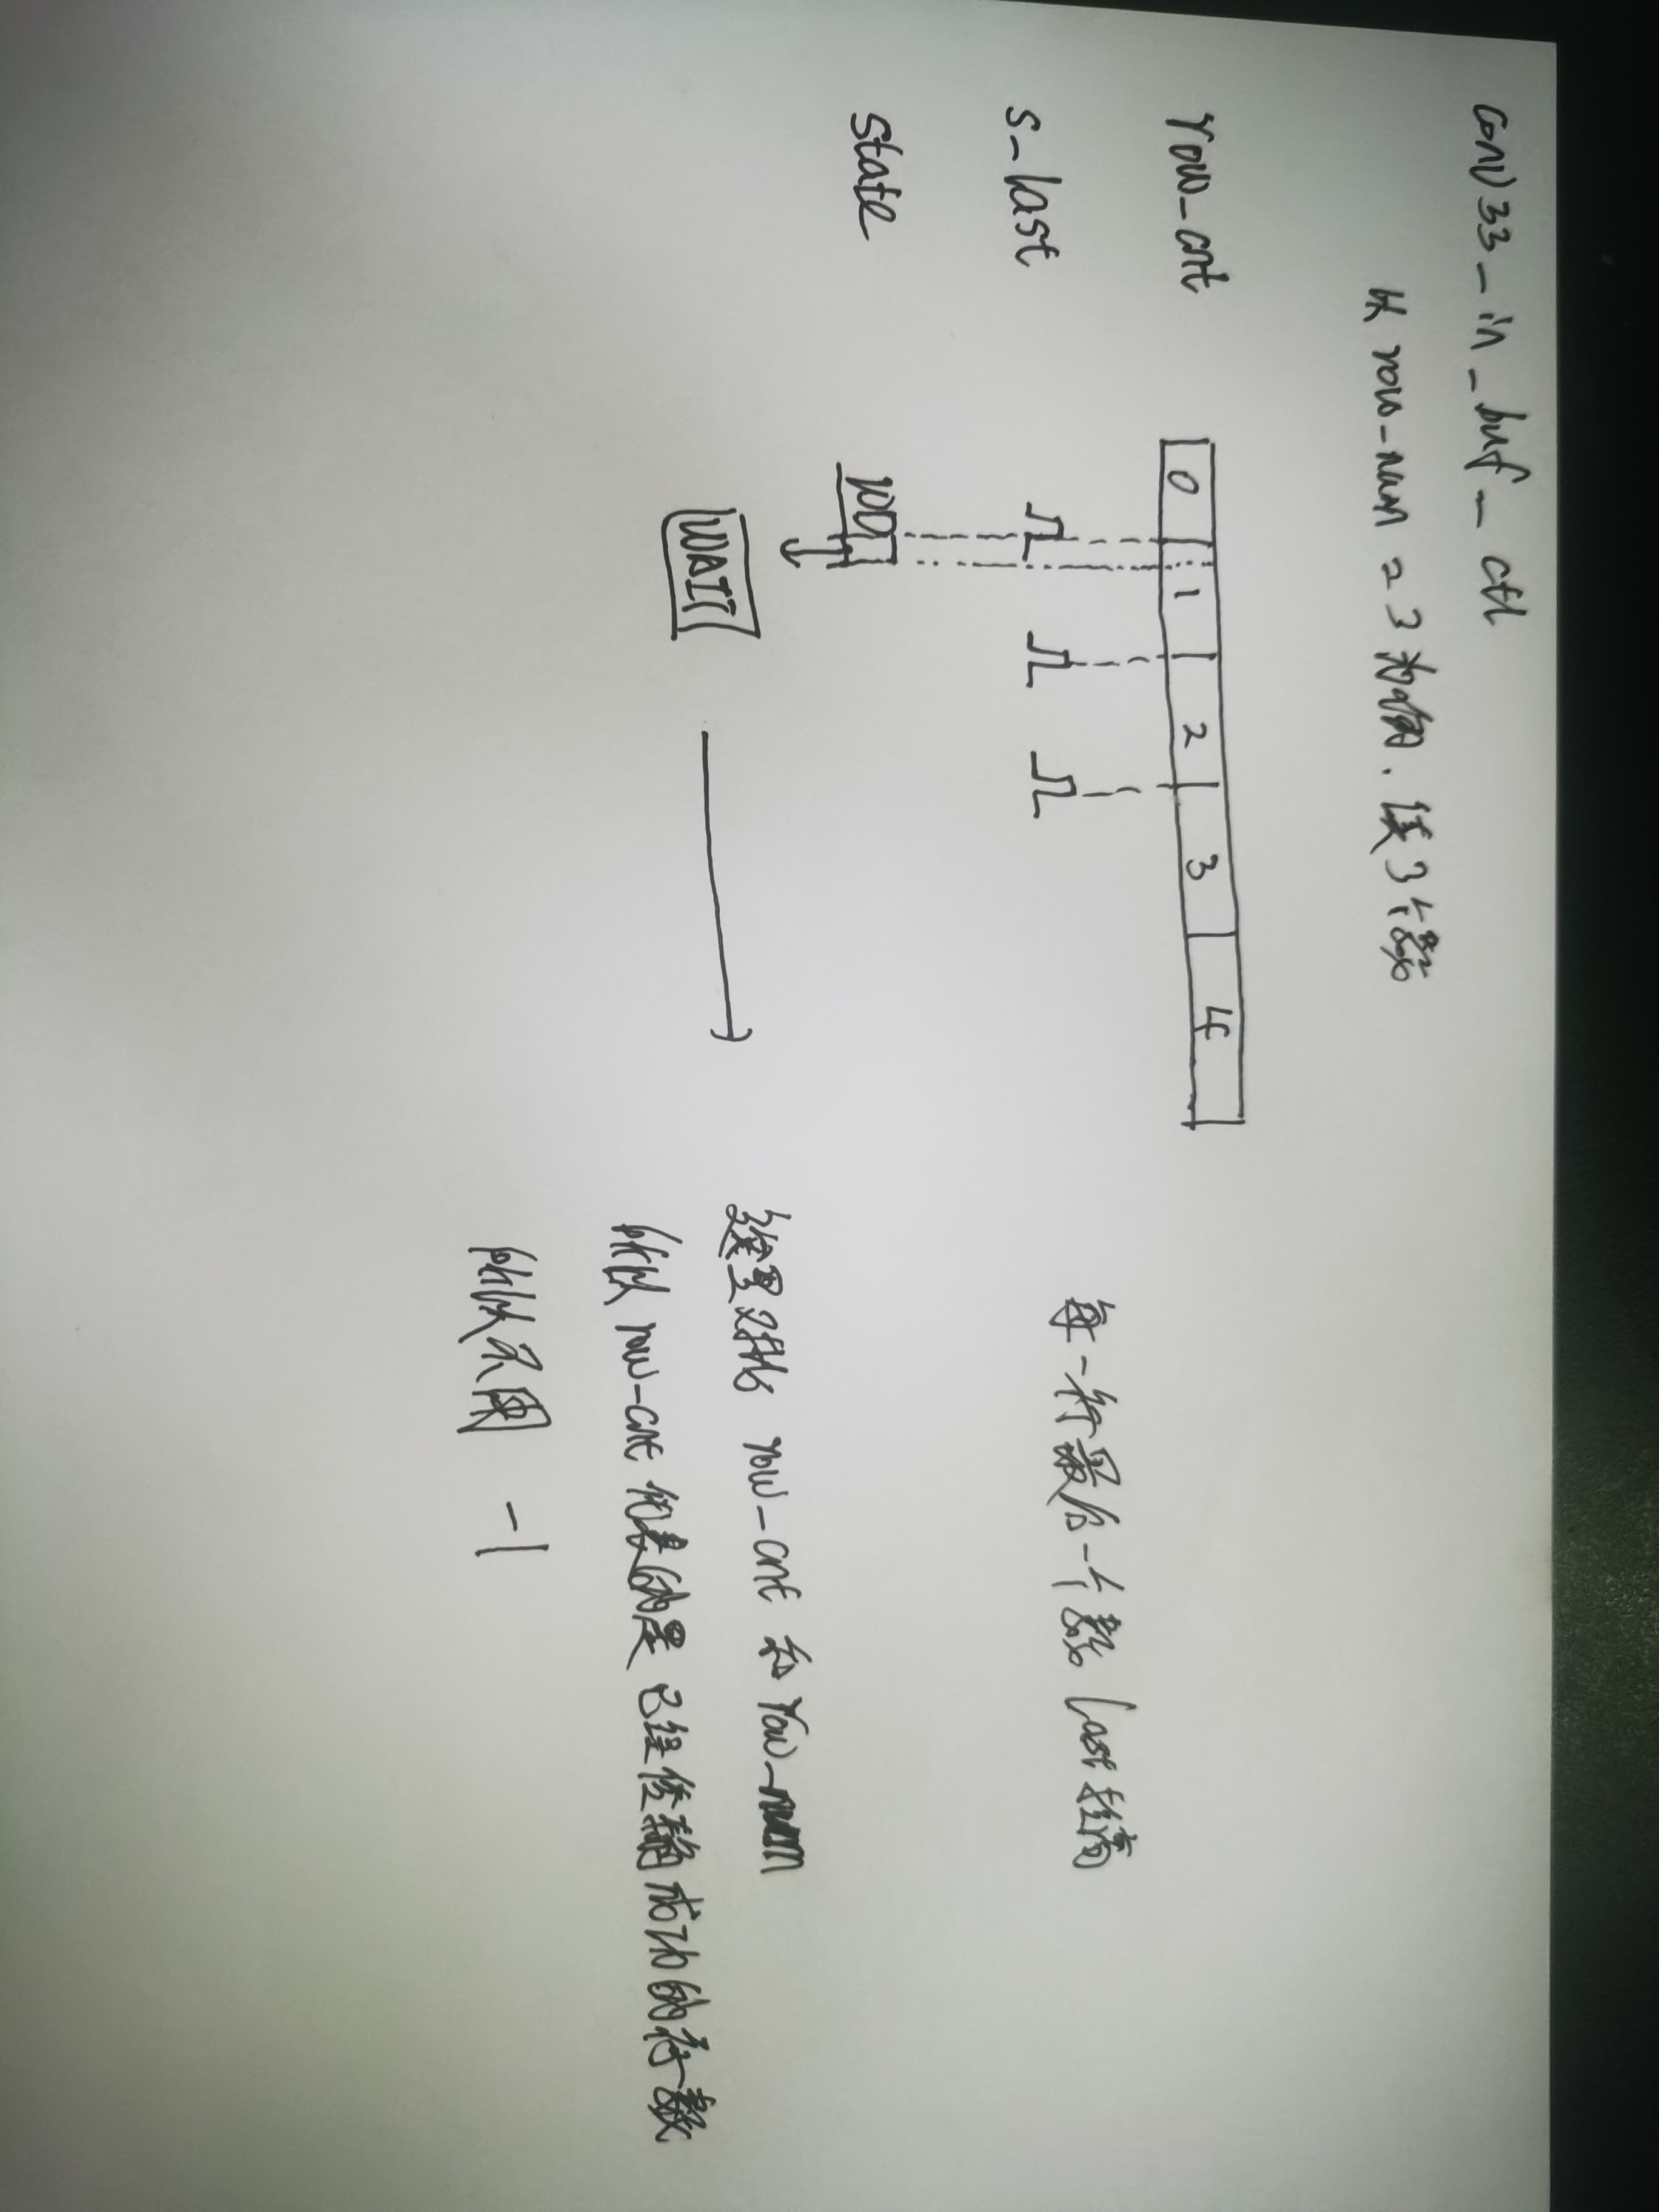 conv33_in_buf_ctl
以 row_num = 3 为例. 读3个数
row_cnt 0 1 2 3 4
每一行最后一个数 last 拉高
s_last
state
WAIT
这里对比 row_cnt 和 row_num
所以 row_cnt 代表的是 已经传输成功的行数
所以不用 -1